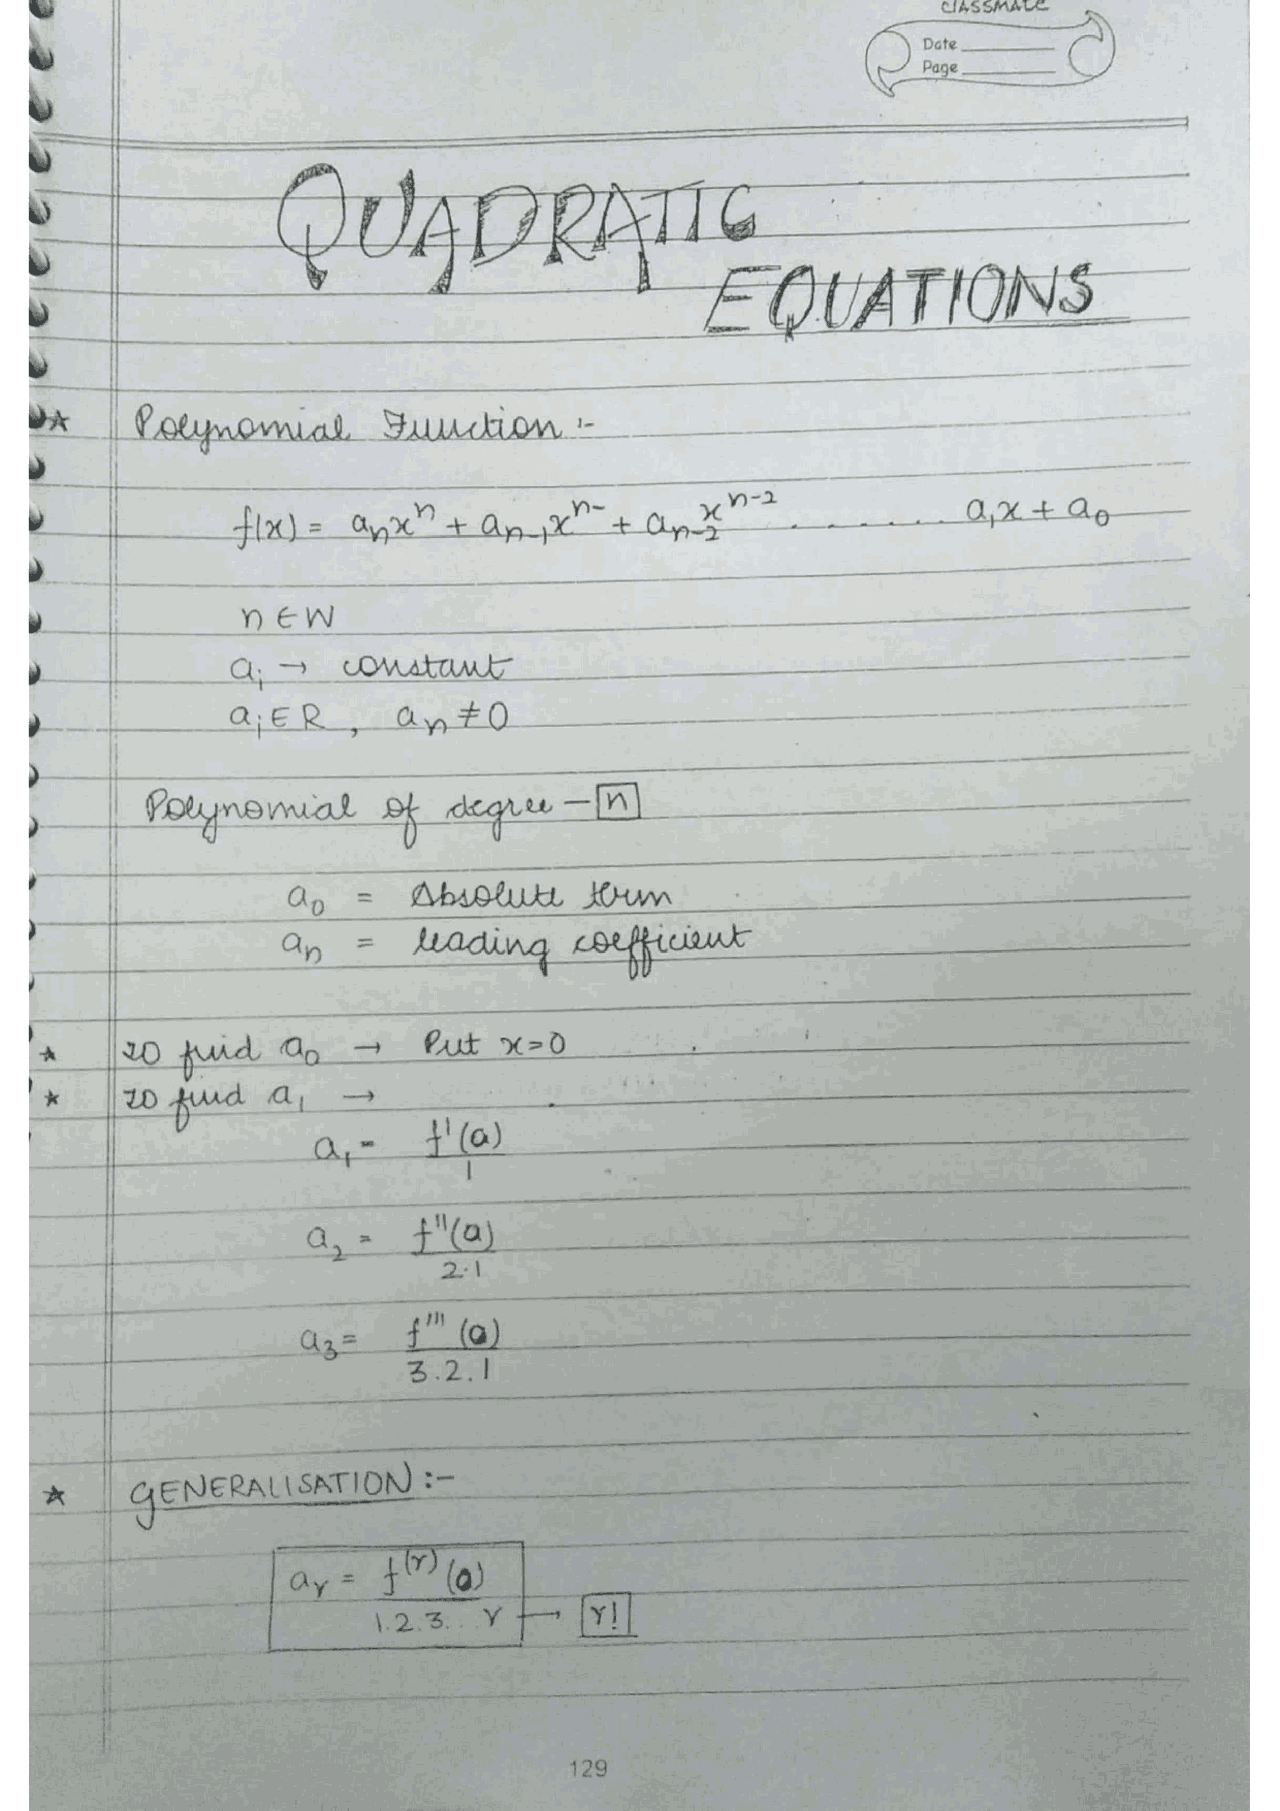 classmate
Date
Page
QUADRATIC
EQUATIONS
★ Polynomial Function :-
f(x) = aₙxⁿ + aₙ₋₁xⁿ⁻ + aₙ₋₂xⁿ⁻² . . . . . . . a₁x + a₀
n ∈ W
aᵢ → constant
aᵢ ∈ R , aₙ ≠ 0
Polynomial of degree - n
a₀ = Absolute term
aₙ = leading coefficient
★ TO find a₀ → Put x=0
★ TO find a₁ →
a₁ = f'(a)
1
a₂ = f''(a)
2.1
a₃ = f'''(a)
3.2.1
★ GENERALISATION :-
aᵣ = f⁽ʳ⁾(a)
1.2.3... r → r!
129